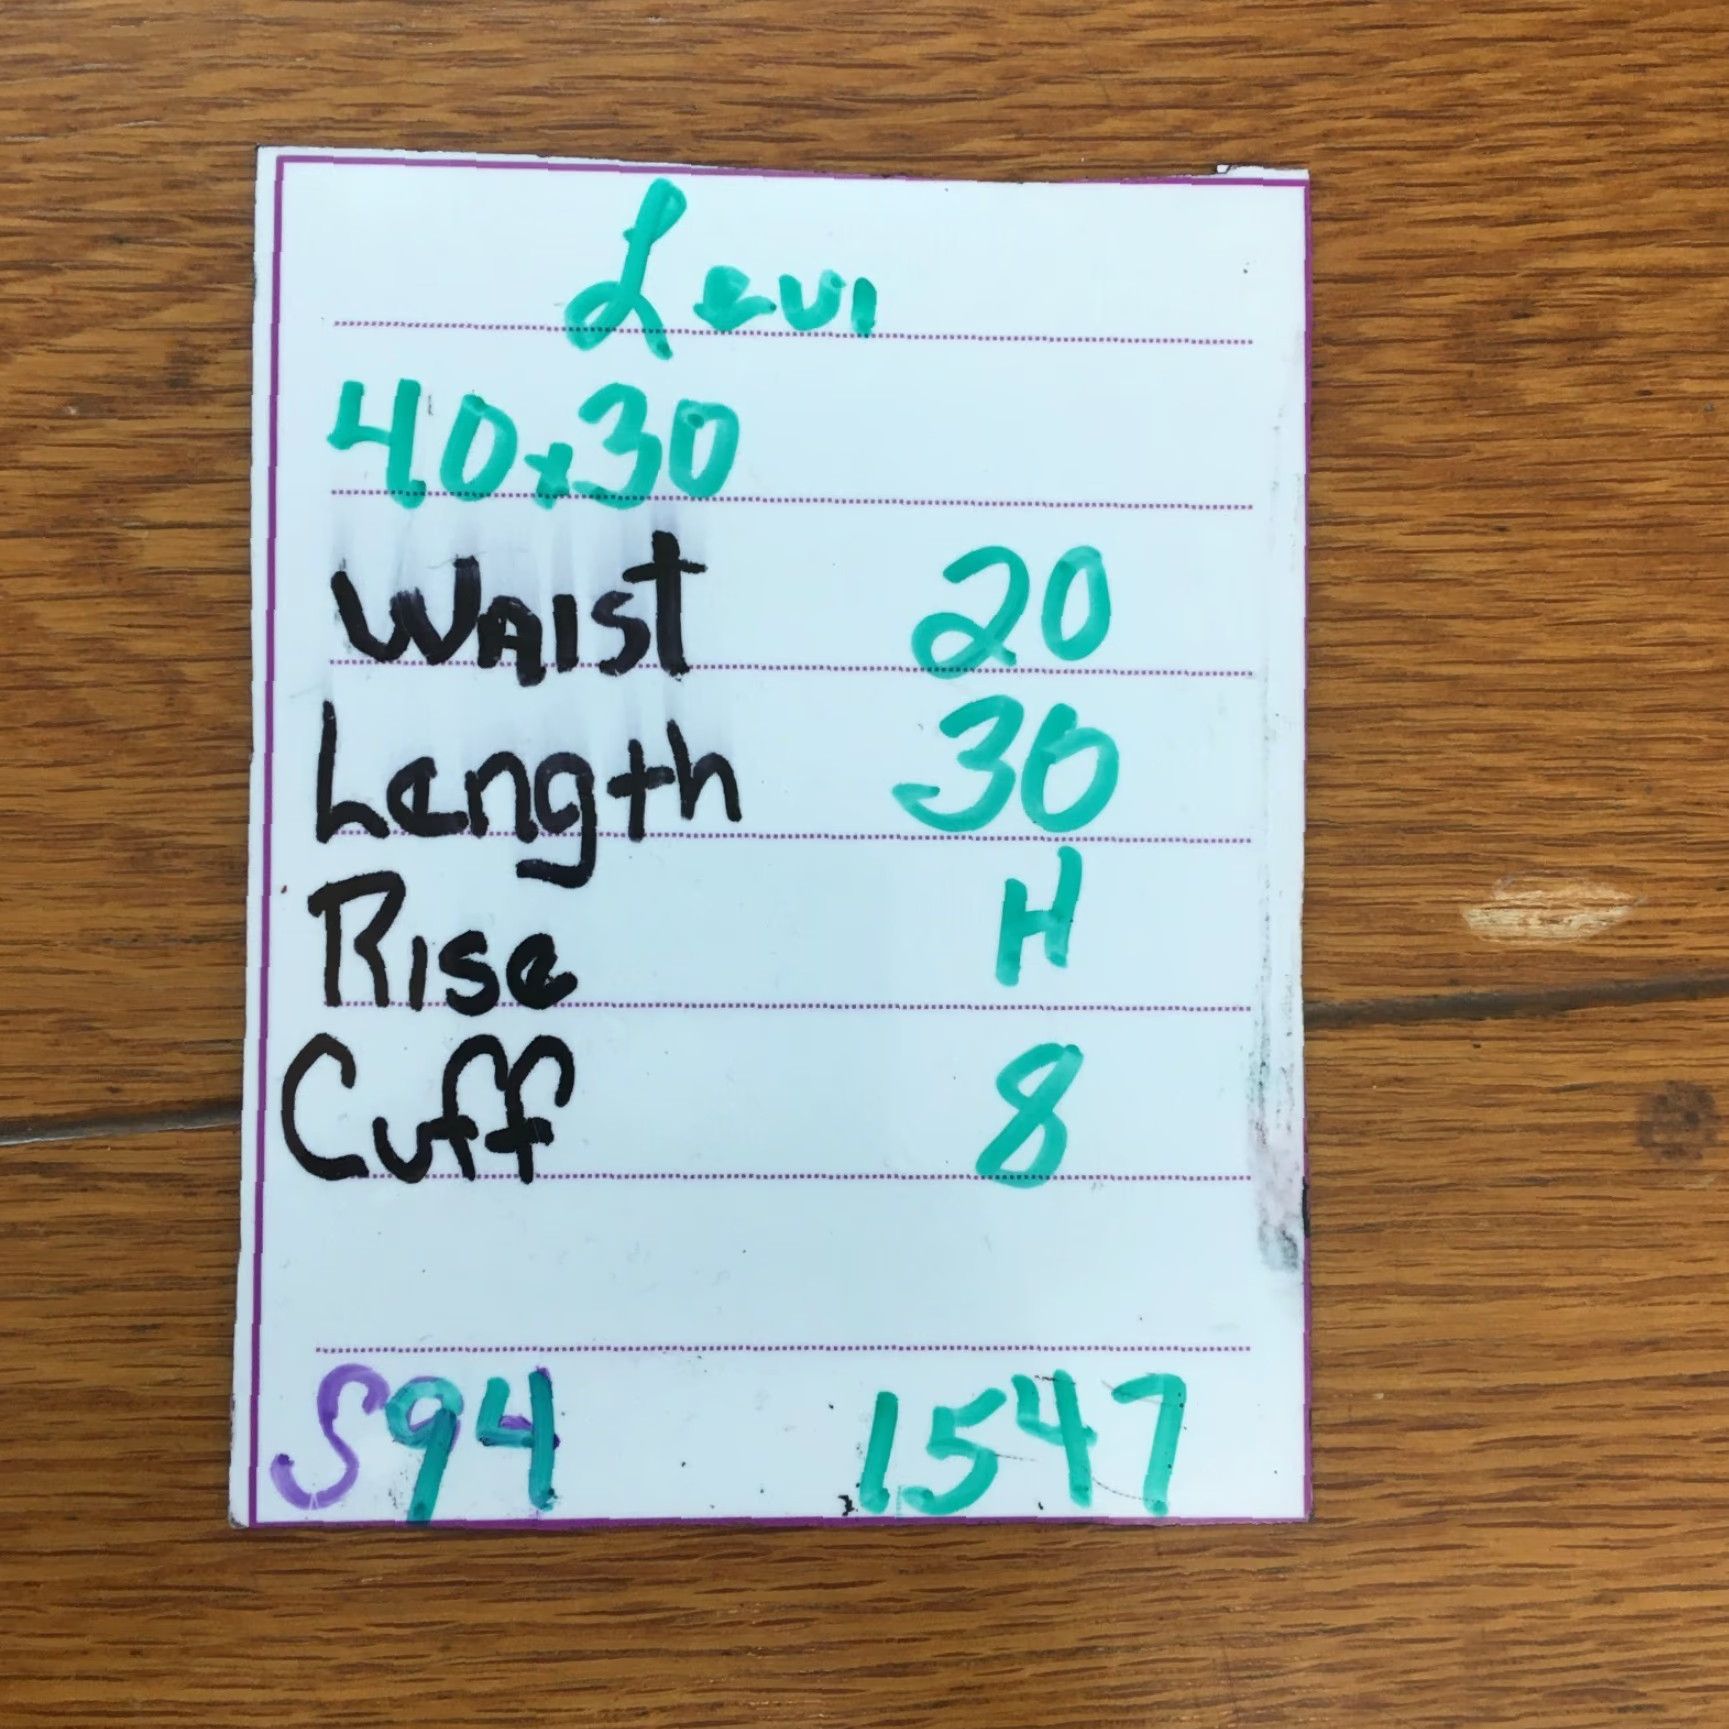 Levi
40x30
Waist 20
Length 30
Rise 11
Cuff 8
S94 1547